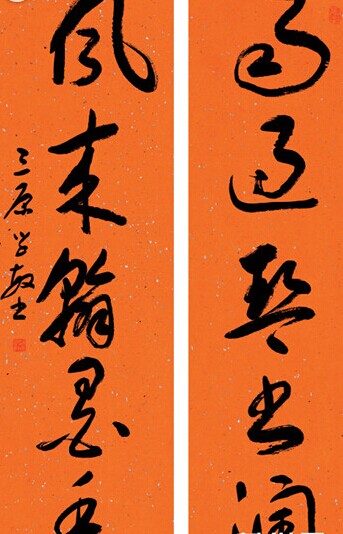 雨过琴书润
风来翰墨香
三原学敏书